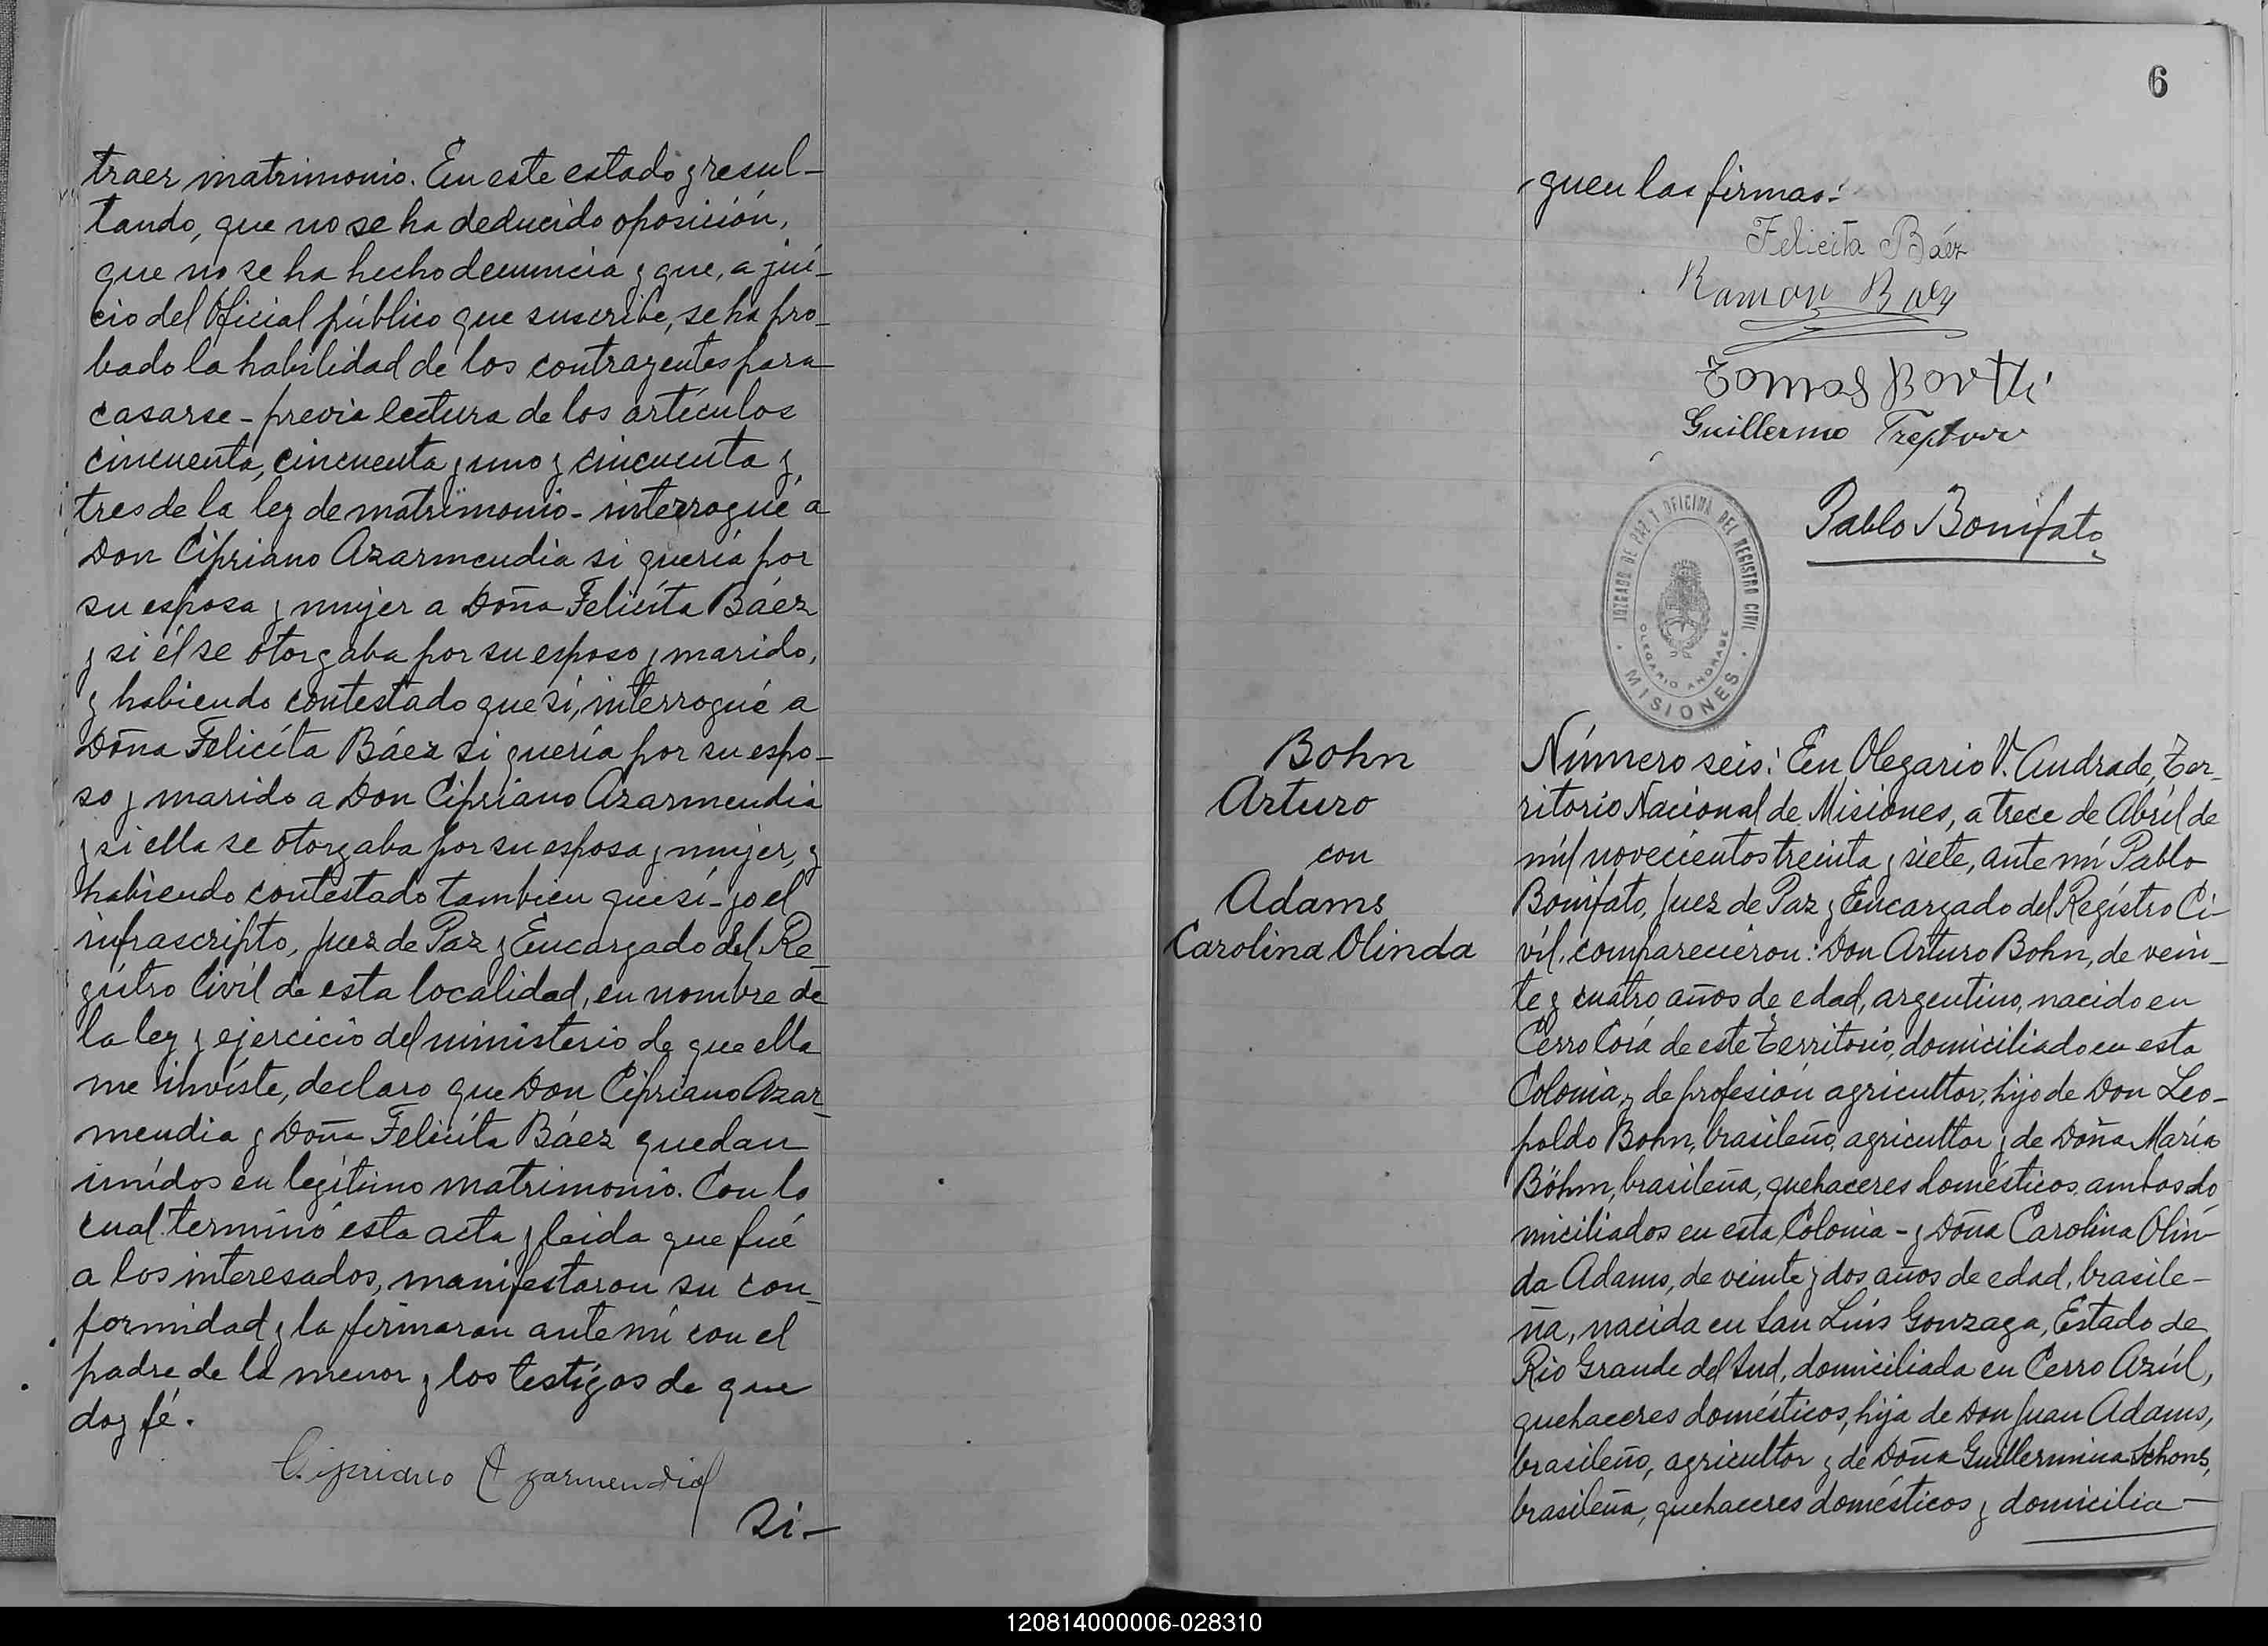 traer matrimonio. En este estado y resul-
tando, que no se ha deducido oposición,
que no se ha hecho denuncia y que, a jui-
cio del Oficial público que suscribe, se ha pro-
bado la habilidad de los contrayentes para
casarse - previa lectura de los artículos
cincuenta, cincuenta y uno y cincuenta y
tres de la ley de matrimonio - interrogué a
Don Cipriano Azarmendia si quería por
su esposa y mujer a Doña Felicíta Báez
y si él se otorgaba por su esposo y marido,
y habiendo contestado que sí, interrogué a
Doña Felicíta Báez si quería por su espo-
so y marido a Don Cipriano Azarmendia
y si ella se otorgaba por su esposa y mujer, y
habiendo contestado tambien que sí - yo el
infrascripto, Juez de Paz y Encargado del Re-
gístro Civíl de esta localidad, en nombre de
la ley y ejercicio del ministerio de que ella
me invíste, declaro que Don Cipriano Azar-
mendia y Doña Felicíta Báez quedan
unídos en legítimo matrimonio. Con lo
cual terminó esta acta y leida que fué
a los interesados, manifestaron su con-
formidad y la firmaron ante mí con el
padre de la menor y los testígos de que
doy fé.
Cipriano Azarmendia
Si-
6
guen las firmas:
Felicita Báez
Ramon Baez
Tomas
Guillermo Treptow
Pablo Bonifato
JUZGADO DE PAZ Y OFICINA DEL REGISTRO CIVIL
OLEGARIO ANDRADE
MISIONES
Bohn
Arturo
con
Adams
Carolina Olinda
Número seis: En Olegario V. Andrade, Ter-
ritorio Nacional de Misiones, a trece de Abríl de
míl novecientos treinta y siete, ante mí Pablo
Bonifato, Juez de Paz y Encargado del Regístro Ci-
víl, comparecieron: Don Arturo Bohn, de vein-
te y cuatro años de edad, argentino, nacido en
Cerro Corá de este Territorio, domiciliado en esta
Colonia, de profesión agricultor, hijo de Don Leo-
poldo Bohn, brasileño, agricultor y de Doña María
Böhm, brasileña, quehaceres domésticos, ambos do
miciliados en esta Colonia - y Doña Carolina Olin-
da Adams, de veinte y dos años de edad, brasile-
ña, nacida en San Luís Gonzaga, Estado de
Rio Grande del Sud, domiciliada en Cerro Azúl,
quehaceres domésticos, hija de Don Juan Adams,
brasileño, agricultor y de Doña Guillermina Schons,
brasileña, quehaceres domésticos y domicilia-
120814000006-028310